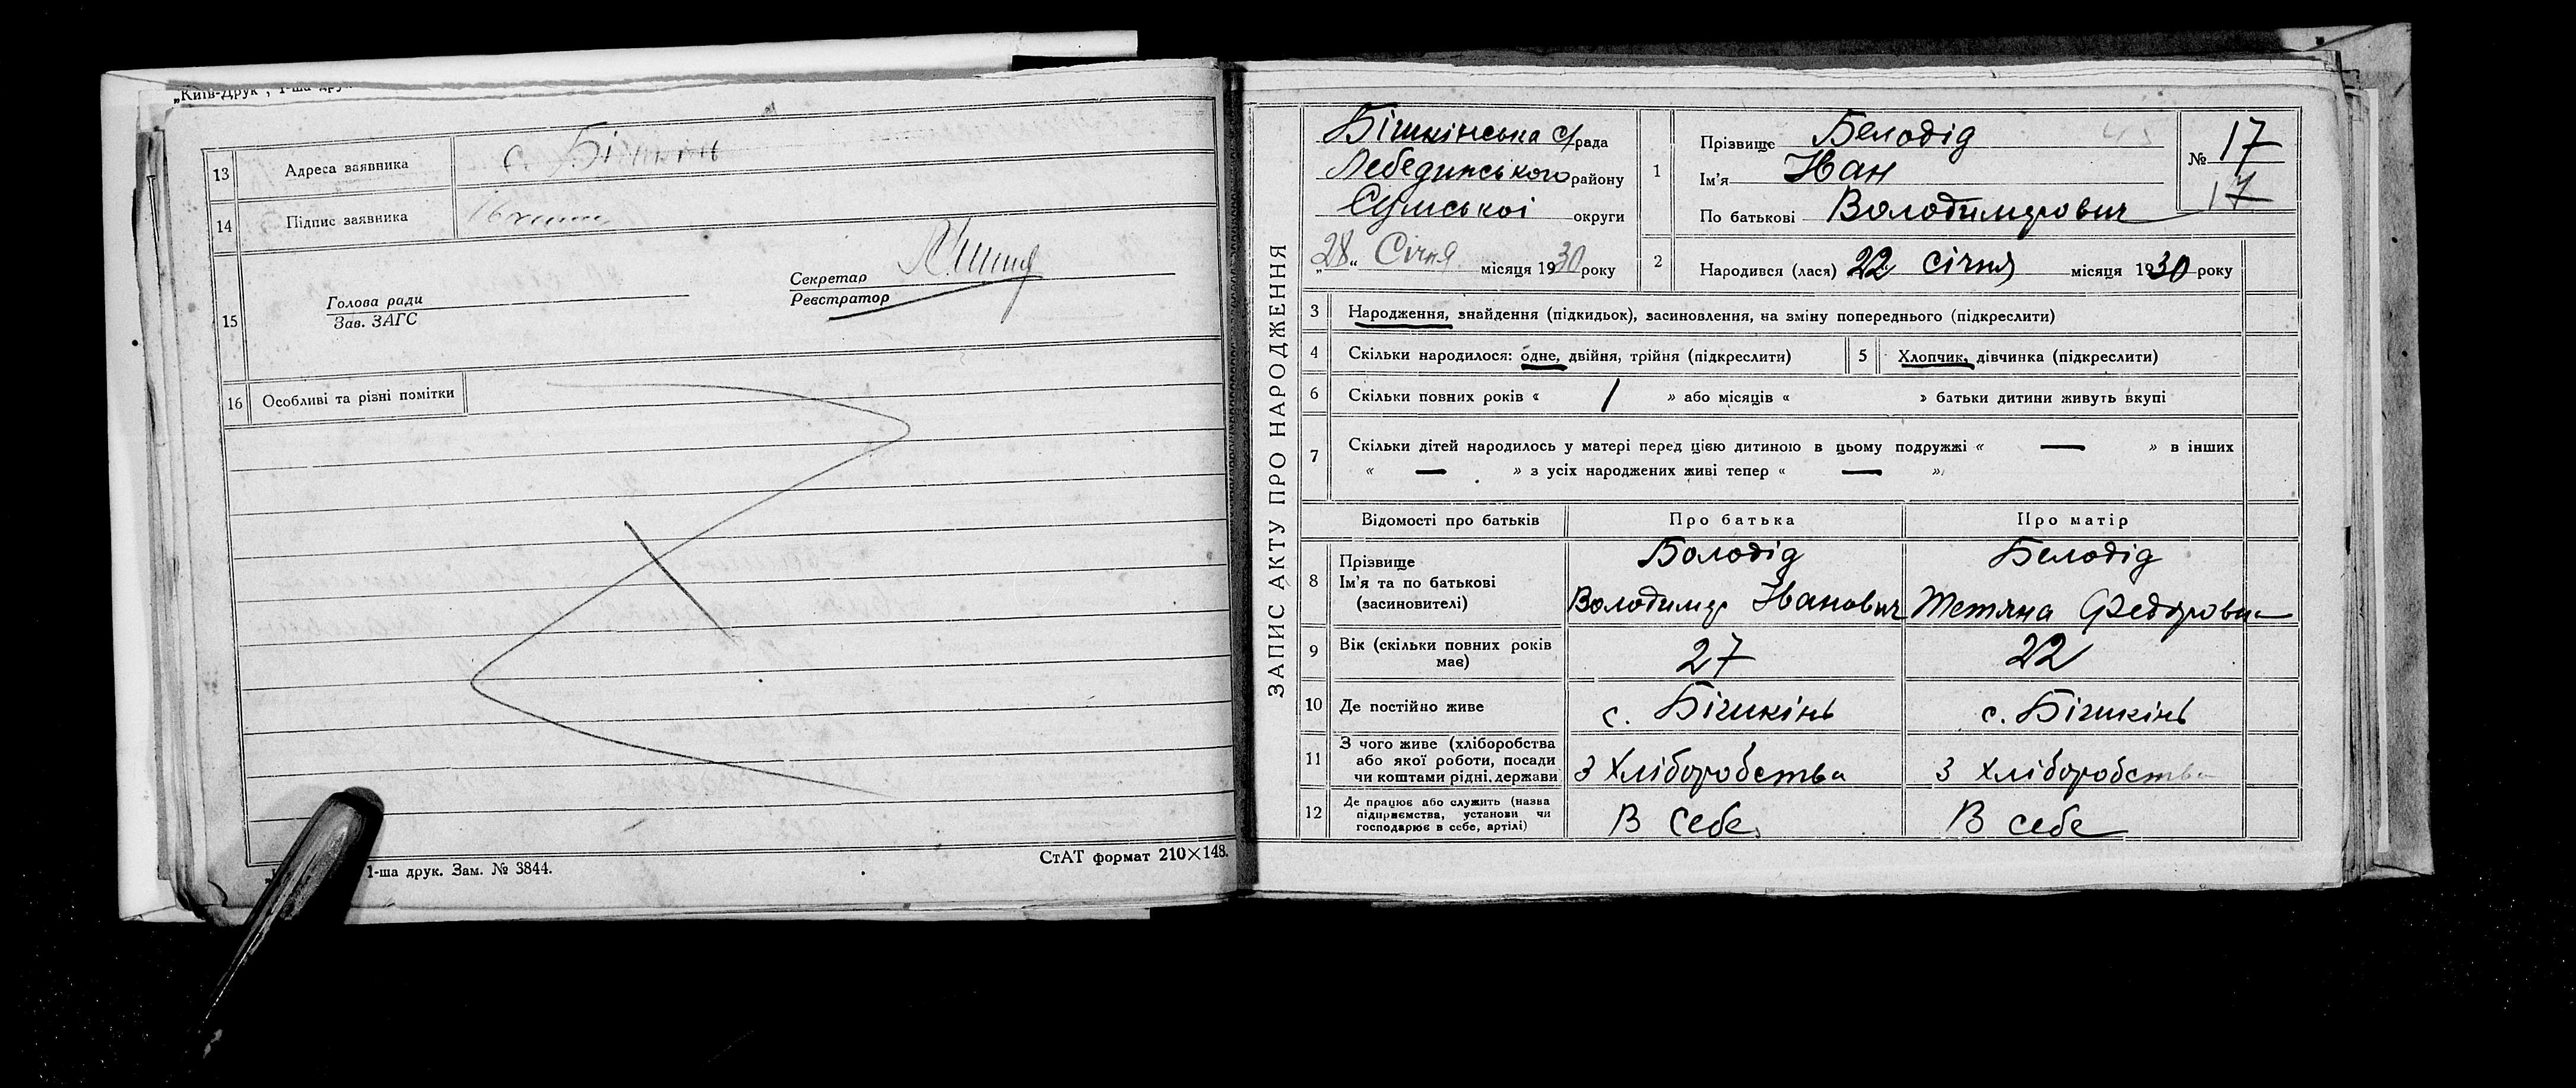 „Київ-Друк“, 1-ша дру
13 Адреса заявника с. Бішкінь
14 Підпис заявника
15 Голова ради
Зав. ЗАГС
Секретар
Реєстратор
16 Особливі та різні помітки
1-ша друк. Зам. № 3844.
СтАТ формат 210×148.
ЗАПИС АКТУ ПРО НАРОДЖЕННЯ
Бішкінська с/рада
Лебединського району
Сумської округи
„28“ Січня місяця 1930 року
1 Прізвище Белодід
Ім'я Іван
По батькові Володимирович
№ 17
17
2 Народився (лася) 22 січня місяця 1930 року
3 Народження, знайдення (підкидьок), засиновлення, на зміну попереднього (підкреслити)
4 Скільки народилося: одне, двійня, трійня (підкреслити) 5 Хлопчик, дівчинка (підкреслити)
6 Скільки повних років « 1 » або місяців « » батьки дитини живуть вкупі
7 Скільки дітей народилось у матері перед цією дитиною в цьому подружжі « — » в інших
« — » з усіх народжених живі тепер « — »
Відомості про батьків Про батька Про матір
8 Прізвище Болодід Белодід
Ім'я та по батькові
(засиновителі) Володимир Іванович Тетяна Федоровна
9 Вік (скільки повних років має) 27 22
10 Де постійно живе с. Бішкінь с. Бішкінь
11 З чого живе (хліборобства
або якої роботи, посади
чи коштами рідні, держави З Хліборобства З хліборобства
12 Де працює або служить (назва
підприємства, установи чи
господарює в себе, артілі) В себе В себе